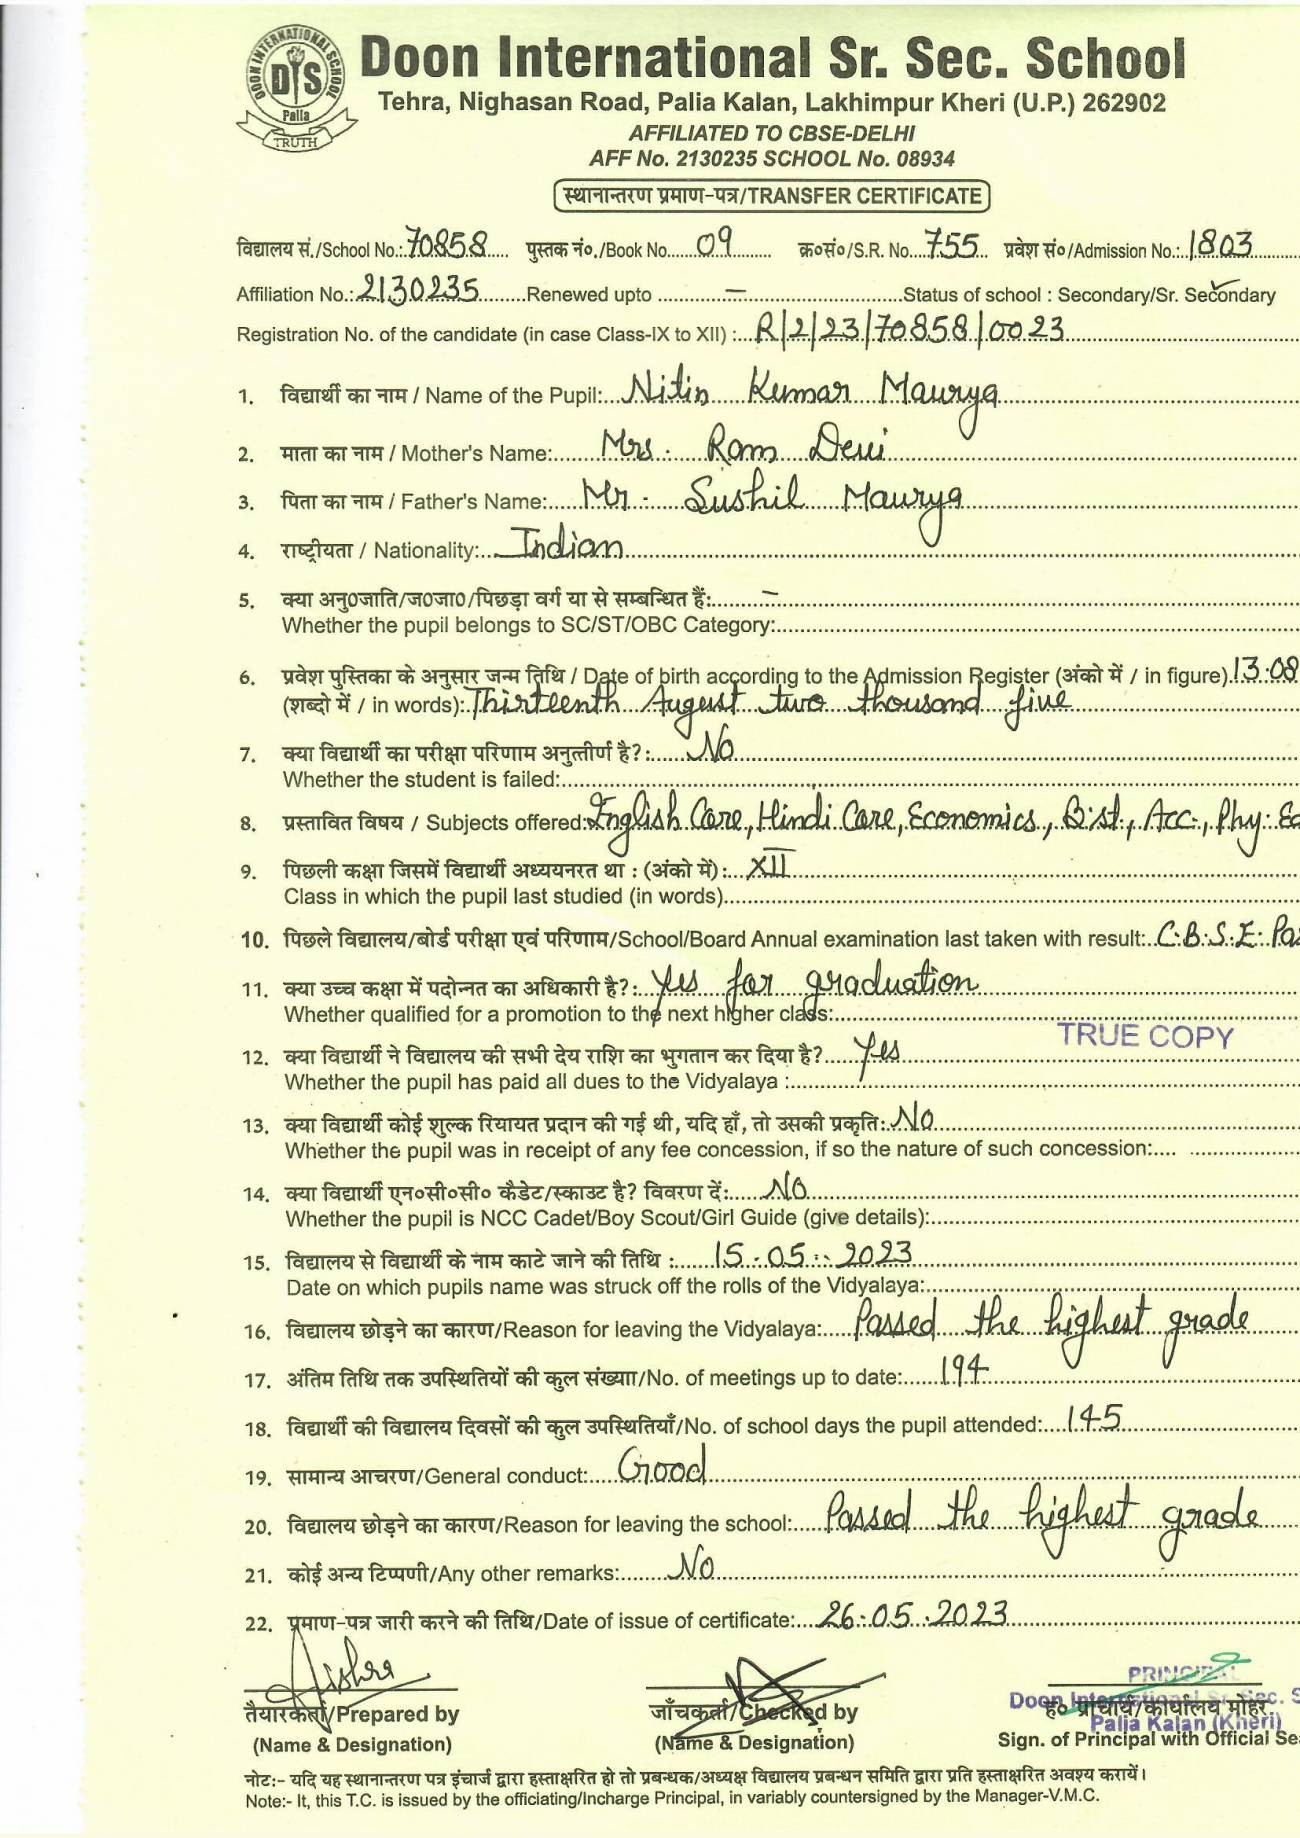 DOON INTERNATIONAL SCHOOL
DIS
Palia
TRUTH
Doon International Sr. Sec. School
Tehra, Nighasan Road, Palia Kalan, Lakhimpur Kheri (U.P.) 262902
AFFILIATED TO CBSE-DELHI
AFF No. 2130235 SCHOOL No. 08934
स्थानान्तरण प्रमाण-पत्र/TRANSFER CERTIFICATE
विद्यालय सं./School No.:70858 पुस्तक नं०./Book No. 09 क्र०सं०/S.R. No. 755 प्रवेश सं०/Admission No.: 1803
Affiliation No.: 2130235 Renewed upto – Status of school : Secondary/Sr. Secondary
Registration No. of the candidate (in case Class-IX to XII) : R/2/23/70858/0023
1. विद्यार्थी का नाम / Name of the Pupil: Nitin Kumar Maurya
2. माता का नाम / Mother's Name: Mrs. Ram Devi
3. पिता का नाम / Father's Name: Mr. Sushil Maurya
4. राष्ट्रीयता / Nationality: Indian
5. क्या अनु0जाति/ज0जा0/पिछड़ा वर्ग या से सम्बन्धित हैं: –
Whether the pupil belongs to SC/ST/OBC Category:
6. प्रवेश पुस्तिका के अनुसार जन्म तिथि / Date of birth according to the Admission Register (अंको में / in figure) 13.08
(शब्दो में / in words): Thirteenth August two thousand five
7. क्या विद्यार्थी का परीक्षा परिणाम अनुत्तीर्ण है?: No
Whether the student is failed:
8. प्रस्तावित विषय / Subjects offered: English Core, Hindi Core, Economics, B.st, Acc., Phy. Ed
9. पिछली कक्षा जिसमें विद्यार्थी अध्ययनरत था : (अंको में) : XII
Class in which the pupil last studied (in words)
10. पिछले विद्यालय/बोर्ड परीक्षा एवं परिणाम/School/Board Annual examination last taken with result: C.B.S.E. Pas
11. क्या उच्च कक्षा में पदोन्नत का अधिकारी है?: Yes for graduation
Whether qualified for a promotion to the next higher class:
TRUE COPY
12. क्या विद्यार्थी ने विद्यालय की सभी देय राशि का भुगतान कर दिया है? Yes
Whether the pupil has paid all dues to the Vidyalaya :
13. क्या विद्यार्थी कोई शुल्क रियायत प्रदान की गई थी, यदि हाँ, तो उसकी प्रकृति: No
Whether the pupil was in receipt of any fee concession, if so the nature of such concession:
14. क्या विद्यार्थी एन०सी०सी० कैडेट/स्काउट है? विवरण दें: No
Whether the pupil is NCC Cadet/Boy Scout/Girl Guide (give details):
15. विद्यालय से विद्यार्थी के नाम काटे जाने की तिथि : 15.05.2023
Date on which pupils name was struck off the rolls of the Vidyalaya:
16. विद्यालय छोड़ने का कारण/Reason for leaving the Vidyalaya: Passed the highest grade
17. अंतिम तिथि तक उपस्थितियों की कुल संख्या/No. of meetings up to date: 194
18. विद्यार्थी की विद्यालय दिवसों की कुल उपस्थितियाँ/No. of school days the pupil attended: 145
19. सामान्य आचरण/General conduct: Good
20. विद्यालय छोड़ने का कारण/Reason for leaving the school: Passed the highest grade
21. कोई अन्य टिप्पणी/Any other remarks: No
22. प्रमाण-पत्र जारी करने की तिथि/Date of issue of certificate: 26.05.2023
PRINCIPAL
Doon International Sr. Sec. S
Palia Kalan (Kheri)
तैयारकर्ता/Prepared by जाँचकर्ता/Checked by ह० प्राचार्य/कार्यालय मोहर
(Name & Designation) (Name & Designation) Sign. of Principal with Official Sea
नोट:- यदि यह स्थानान्तरण पत्र इंचार्ज द्वारा हस्ताक्षरित हो तो प्रबन्धक/अध्यक्ष विद्यालय प्रबन्धन समिति द्वारा प्रति हस्ताक्षरित अवश्य करायें।
Note:- It, this T.C. is issued by the officiating/Incharge Principal, in variably countersigned by the Manager-V.M.C.